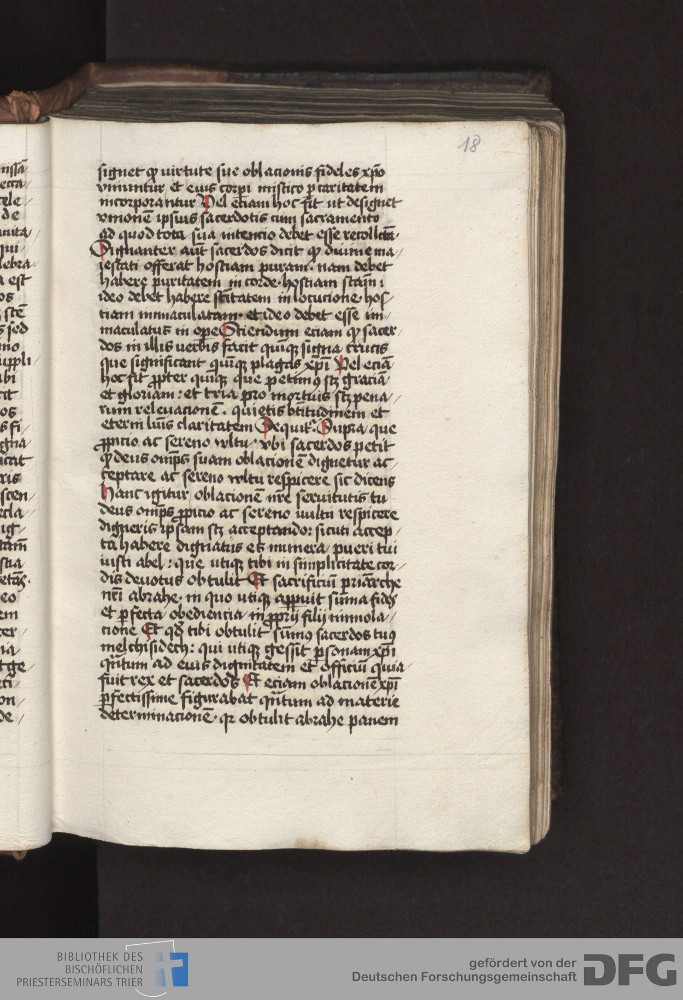 18
signet qͥ virtute sue oblacionis fideles xp̄o
vniuntur et eius corpi mistico ꝑ caritatem
incorporantur Vel etiam hoc fit ut designet
vnionē ipsius sacerdotis cum sacramento
ad quod tota sua intencio debet esse recollcā
Signanter aūt sacerdos dicit qͥ diuine ma
iestati offerat hostiam puram· nam debet
habere puritatem in corde· hostiam scām:
ideo debet habere sc̄titatem in locucione hos
tiam immaculatam· et ideo debet esse im
maculatus in ope Sciendum etiam qͥ sacer
dos in illis verbis facit quīqꝫ signa crucis
que significant quīqꝫ plagas xp̄i Vel eciā
hoc fit ꝓpter quīqꝫ que petimus scꝫ graciā
et gloriam: et tria pro mortuis scꝫ pena
rum releuacionē· quietis btītudinem et
eterni luīs claritatem Sequitᷣ· Supra que
ꝓpicio ac sereno vltu· vbi sacerdos petit
qͥ deus omp̄s suam oblacionē dignetur ac
ceptare ac sereno vltu respicere sic dicens
Hanc igitur oblacionē nr̄e seruitutis tu
deus omp̄s ꝓpicio ac sereno vultu respicere
digneris ipsam scꝫ acceptando: sicuti accep
ta habere dignatus es munera pueri tui
iusti abel: que utiqꝫ tibi in simplicitate cor
dis deuotus obtulit Et sacrificiū pr̄iarche
nr̄i abrahe· in quo utiqꝫ apꝑuit sūma fides
et ꝑfecta obediencia in ꝓprij filij immola
cione Et qd̄ tibi obtulit sūmus sacerdos tuꝯ
melchisidech: qui utiqꝫ gessit ꝑsonam xp̄i
qn̄tum ad eius dignitatem et officiū quia
fuit rex et sacerdos Et eciam oblacionē xp̄i
ꝑfectissime figurabat qn̄tum ad materie
determinacionē· qꝛ obtulit abrahe panem
BIBLIOTHEK DES
BISCHÖFLICHEN
PRIESTERSEMINARS TRIER
gefördert von der
Deutschen Forschungsgemeinschaft
DFG